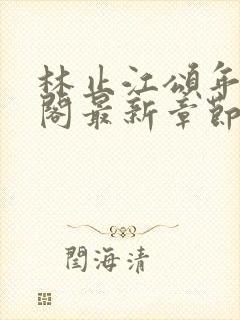 林止江頌年
閣最新章節
閆海清